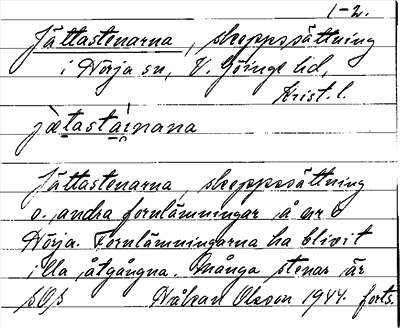 1-2.
Jättastenarna, skeppssättning
i Norja sn, V. Göinge hd,
Krist. l.
jætastainana
Jättastenarna, skeppssättning
o. andra fornlämningar å nr 6
Norja. Fornlämningarna ha blivit
illa åtgångna. Många stenar är
Håkan Olsson 1944. forts.